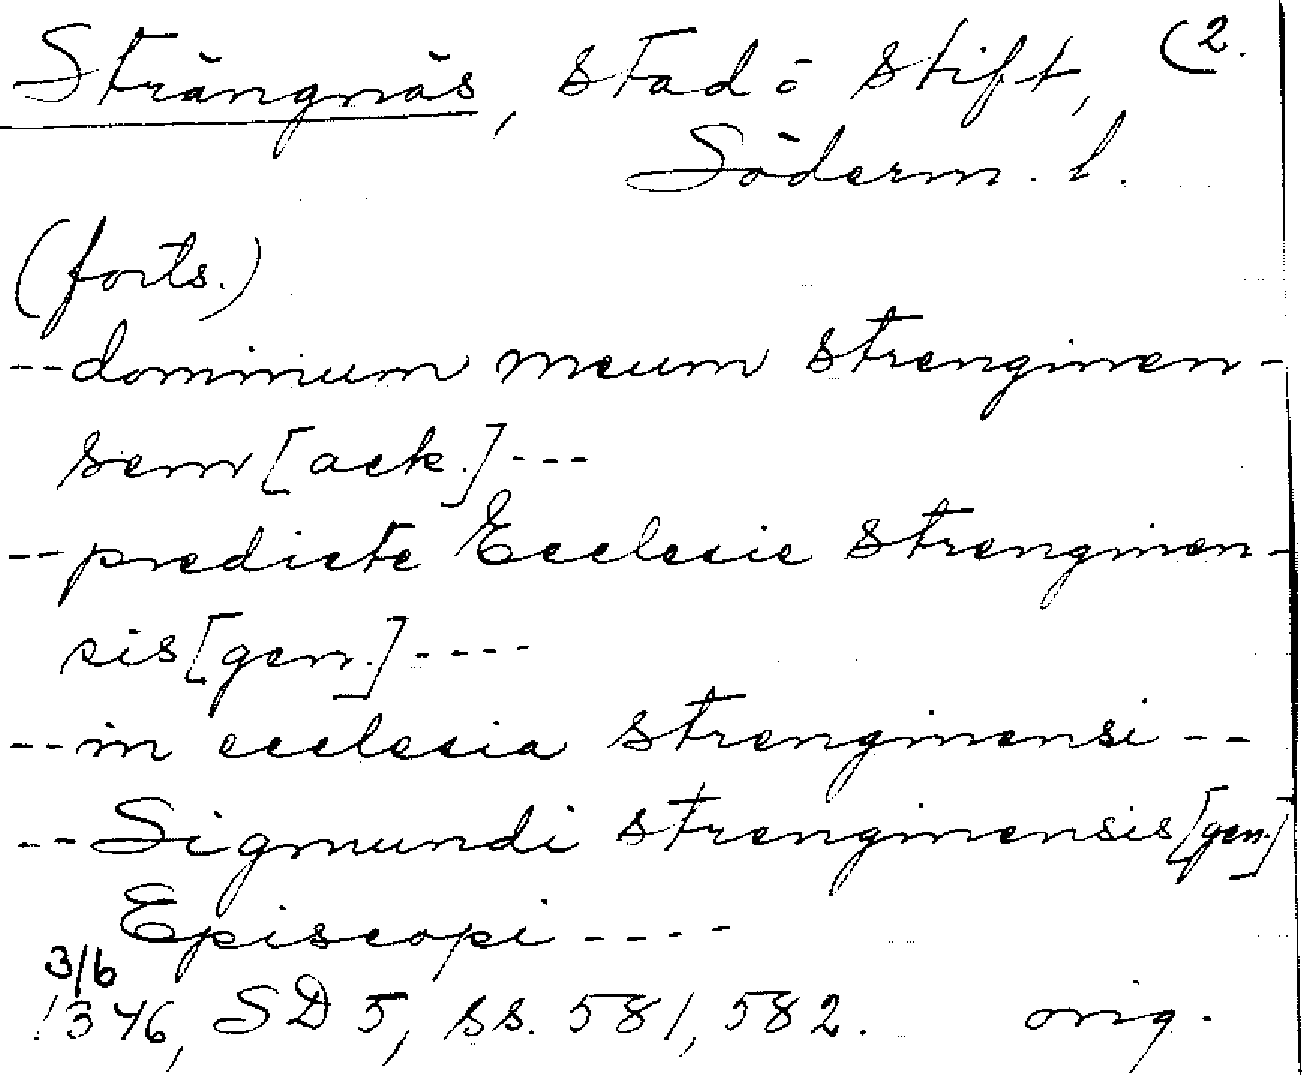 Strängnäs, stad o stift, (2.
Söderm. l.
(forts.)
-- dominum meum strenginen-
sem [ack.] ---
-- predicte Ecclesie strenginen-
sis [gen.] ----
-- in ecclesia strenginensi --
-- Sigmundi strenginensis [gen.]
Episcopi ----
3/6
1346, SD 5, ss. 581, 582. orig.